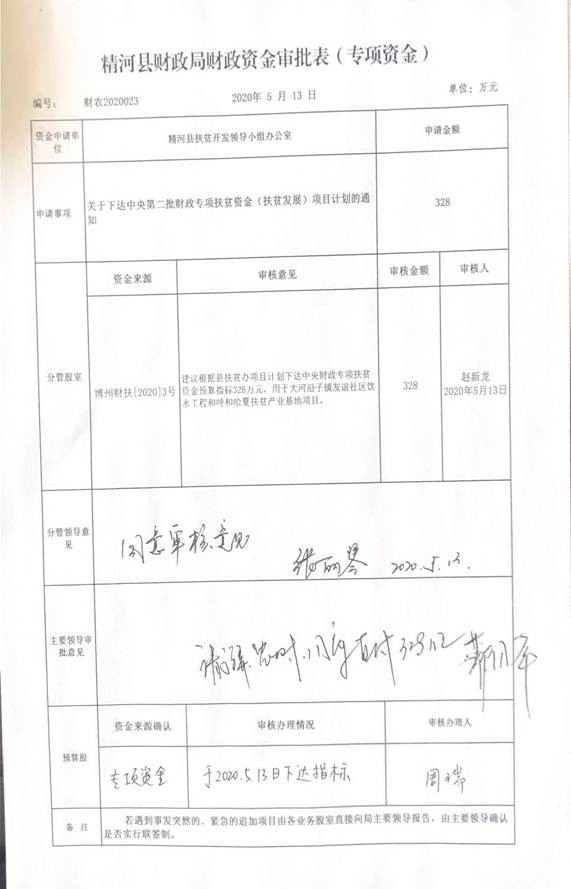 精河县财政局财政资金审批表（专项资金）
编号： 财农2020023 2020年 5 月 13 日 单位：万元
资金申请单
位
精河县扶贫开发领导小组办公室
申请金额
申请事项
关于下达中央第二批财政专项扶贫资金（扶贫发展）项目计划的通
知
328
分管股室
资金来源 审核意见 审核金额 审核人
博州财扶[2020]3号
建议根据县扶贫办项目计划下达中央财政专项扶贫
资金预算指标328万元，用于大河沿子镇友谊社区饮
水工程和呼和哈夏扶贫产业基地项目。
328
赵新龙
2020年5月13日
分管领导意
见
同意审核意见
2020.5.13.
主要领导审
批意见
预算股
资金来源确认 审核办理情况 审核办理人
专项资金 于2020.5.13日下达指标 周瑞
备 注
若遇到事发突然的、紧急的追加项目由各业务股室直接向局主要领导报告，由主要领导确认
是否实行联签制。